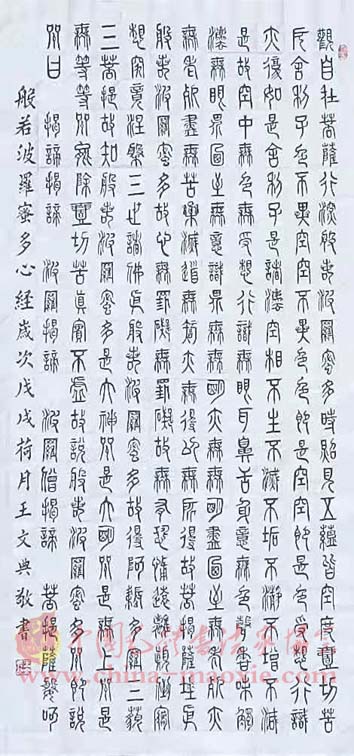 觀自在菩薩行深般若波羅蜜多時照見五蘊皆空度一切苦
厄舍利子色不異空空不異色色即是空空即是色受想行識
亦復如是舍利子是諸法空相不生不滅不垢不淨不增不減
是故空中無色無受想行識無眼耳鼻舌身意無色聲香味觸
法無眼界乃至無意識界無無明亦無無明盡乃至無老死亦
無老死盡無苦集滅道無智亦無得以無所得故菩提薩埵依
般若波羅蜜多故心無罣礙無罣礙故無有恐怖遠離顛倒夢
想究竟涅槃三世諸佛依般若波羅蜜多故得阿耨多羅三藐
三菩提故知般若波羅蜜多是大神咒是大明咒是無上咒是
無等等咒能除一切苦真實不虛故說般若波羅蜜多咒即說
咒曰 揭諦揭諦 波羅揭諦 波羅僧揭諦 菩提薩婆訶
般若波羅蜜多心經歲次戊戌荷月王文典敬書
www.china-maoxie.com